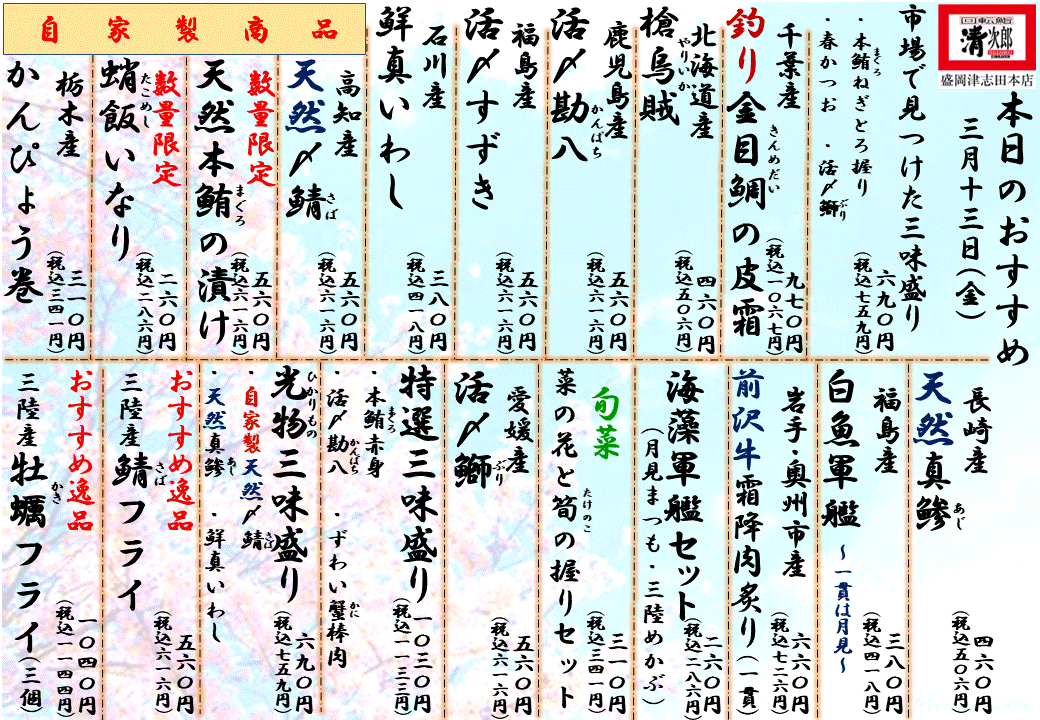 回転鮨
清次郎
SEIJIRO
盛岡津志田本店
本日のおすすめ
三月十三日(金)
市場で見つけた三味盛り
・本鮪ねぎとろ握り
まぐろ
・春かつお ・活〆鰤
ぶり
六九〇円
(税込七五九円)
千葉産
釣り金目鯛の皮霜
きんめだい
九七〇円
(税込一〇六七円)
北海道産
槍烏賊
やりいか
四六〇円
(税込五〇六円)
鹿児島産
活〆勘八
かんぱち
五六〇円
(税込六一六円)
福島産
活〆すずき
五六〇円
(税込六一六円)
石川産
鮮真いわし
三八〇円
(税込四一八円)
自家製商品
高知産
天然〆鯖
さば
五六〇円
(税込六一六円)
数量限定
天然本鮪の漬け
まぐろ
五六〇円
(税込六一六円)
数量限定
蛸飯いなり
たこめし
二六〇円
(税込二八六円)
栃木産
かんぴょう巻
三一〇円
(税込三四一円)
長崎産
天然真鯵
あじ
四六〇円
(税込五〇六円)
福島産
白魚軍艦
~一貫は月見~
三八〇円
(税込四一八円)
岩手・奥州市産
前沢牛霜降肉炙り(一貫)
六六〇円
(税込七二六円)
海藻軍艦セット
(月見まつも・三陸めかぶ)
二六〇円
(税込二八六円)
旬菜
菜の花と筍の握りセット
たけのこ
三一〇円
(税込三四一円)
愛媛産
活〆鰤
ぶり
五六〇円
(税込六一六円)
特選三味盛り
・本鮪赤身
まぐろ
・活〆勘八 ・ずわい蟹棒肉
かんぱち
かに
一〇三〇円
(税込一一三三円)
光物三味盛り
ひかりもの
・自家製天然〆鯖
さば
・天然真鯵 ・鮮真いわし
あじ
六九〇円
(税込七五九円)
おすすめ逸品
三陸産鯖フライ
さば
五六〇円
(税込六一六円)
おすすめ逸品
三陸産牡蠣フライ(三個)
かき
一〇四〇円
(税込一一四四円)